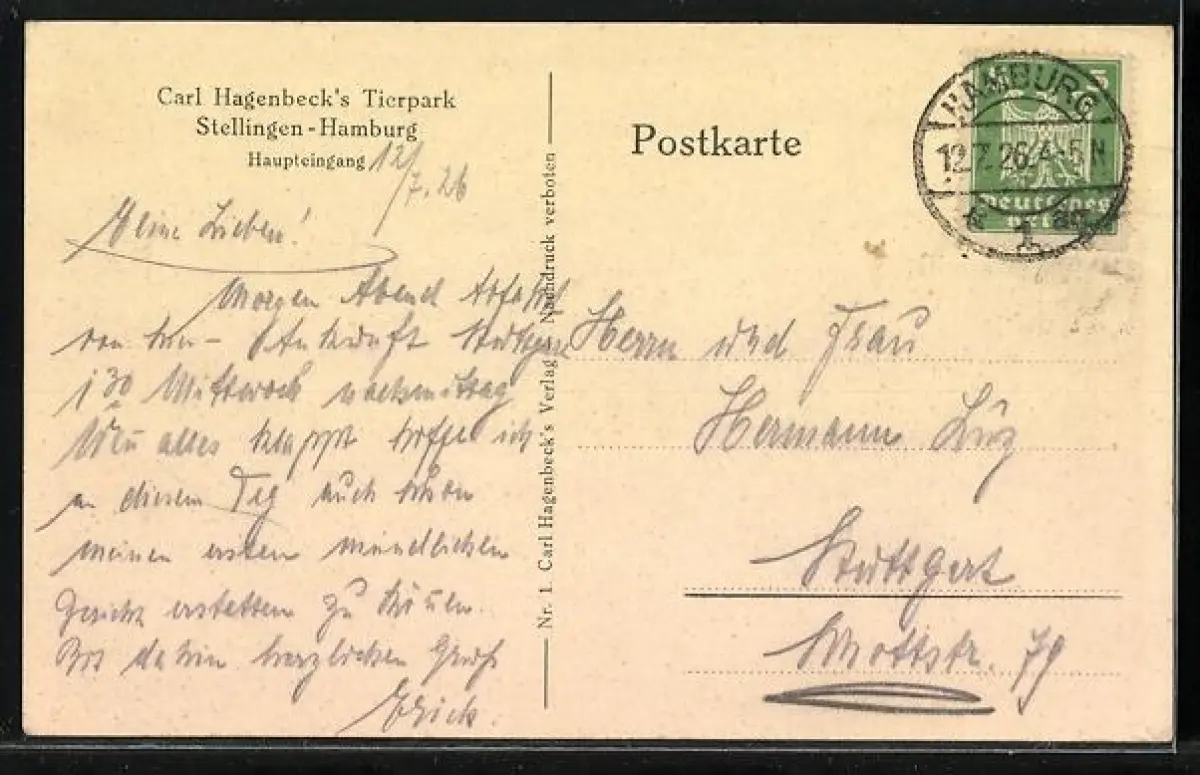 Carl Hagenbeck's Tierpark
Stellingen-Hamburg
Haupteingang
12/7.26
Meine Lieben!
Morgen Abend Abfahrt
von hier – Ankunft Stuttgart
130 Mittwoch nachmittag
Wenn alles klappt hoffe ich
an diesem Tag auch schon
meinen ersten mündlichen
Bericht erstatten zu können.
Bis dahin herzlichen Gruß
Erich.
Nr. 1. Carl Hagenbeck's Verlag Nachdruck verboten
Postkarte
HAMBURG
12.7.26.4-5 N
1
5
Deutsches
Reich
Herrn und Frau
Hermann
Stuttgart
79